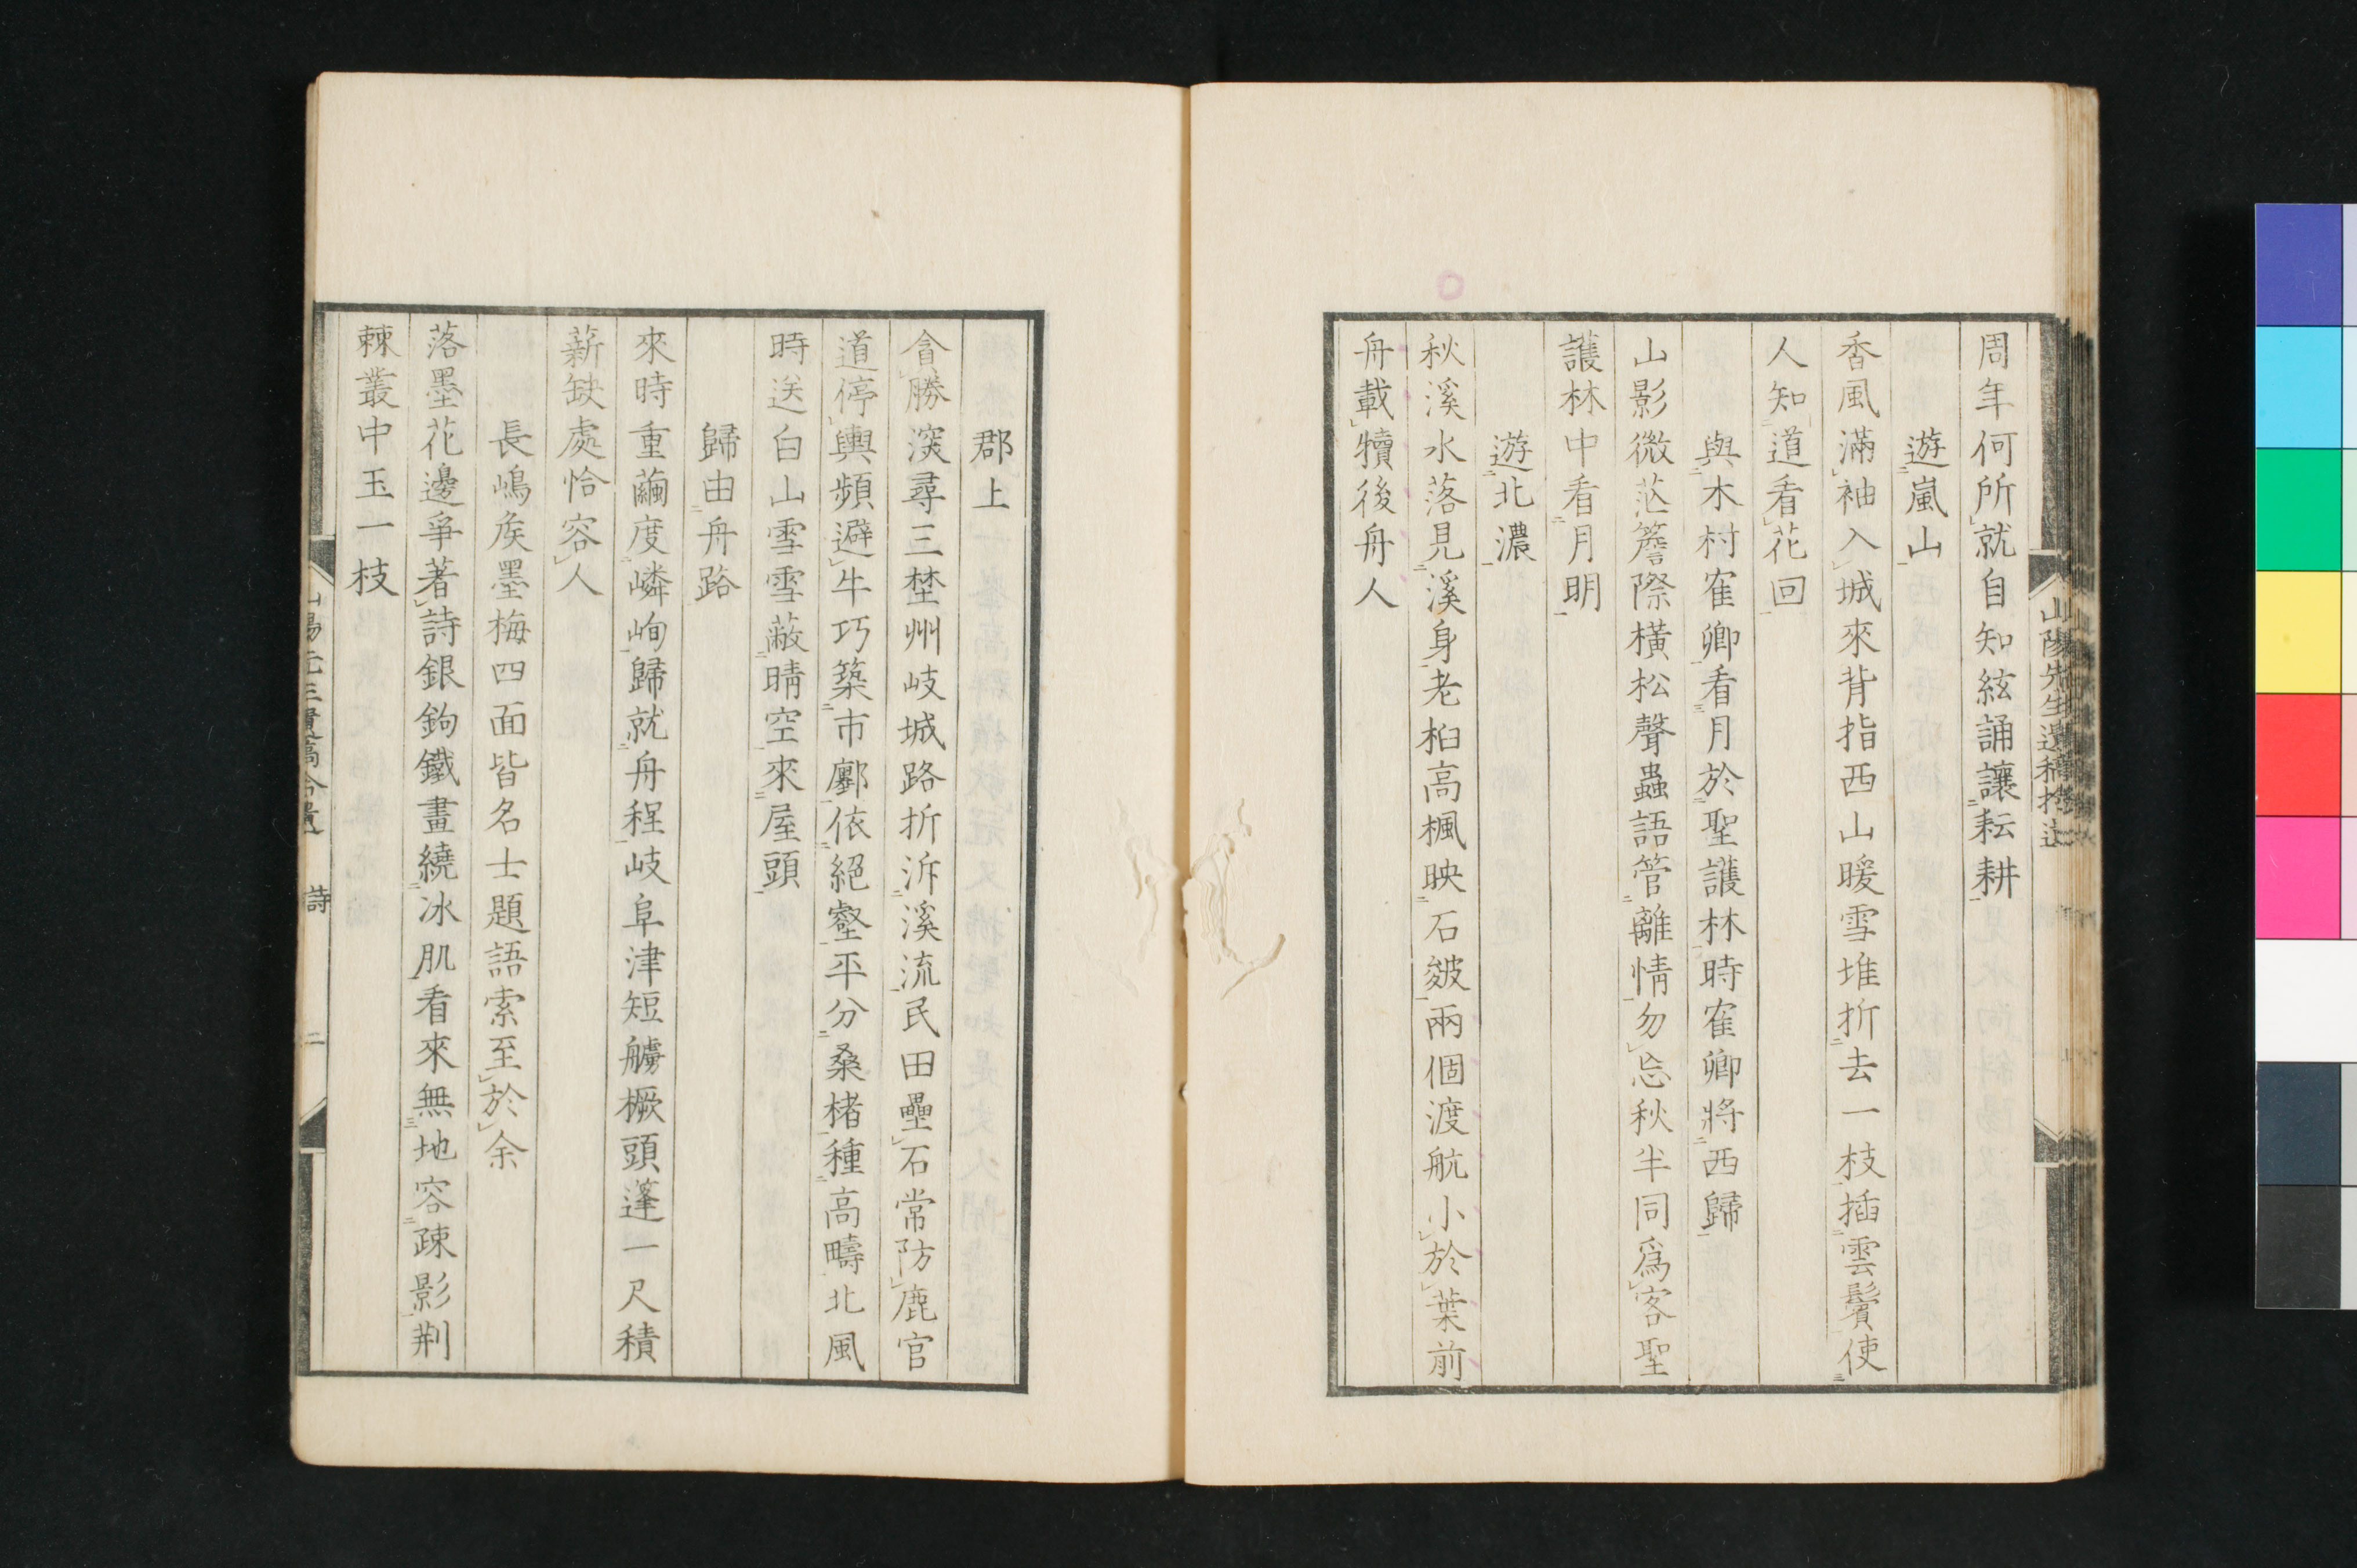 周年何所就自知絃誦讓耘耕
遊嵐山
香風滿袖入城來背指西山暖雪堆折去一枝插雲鬢使
人知道看花回
與木村寉卿看月於聖護林時寉卿將西歸
山影微茫簷際橫松聲蟲語管離情勿忘秋半同爲客聖
護林中看月明
遊北濃
秋溪水落見溪身老桕高楓映石皴兩個渡航小於葉前
舟載犢後舟人
郡上
貪勝深尋三埜州岐城路折泝溪流民田壘石常防鹿官
道停輿頻避牛巧築市廛依絕壑平分桑楮種高疇北風
時送白山雪雪蔽晴空來屋頭
歸由舟路
來時重繭度嶙峋歸就舟程岐阜津短艣橛頭蓬一尺積
薪缺處恰容人
長嶋矦墨梅四面皆名士題語索至於余
落墨花邊爭著詩銀鉤鐵畫繞冰肌看來無地容疎影荆
棘叢中玉一枝
山陽先生遺稿拾遺
詩
二